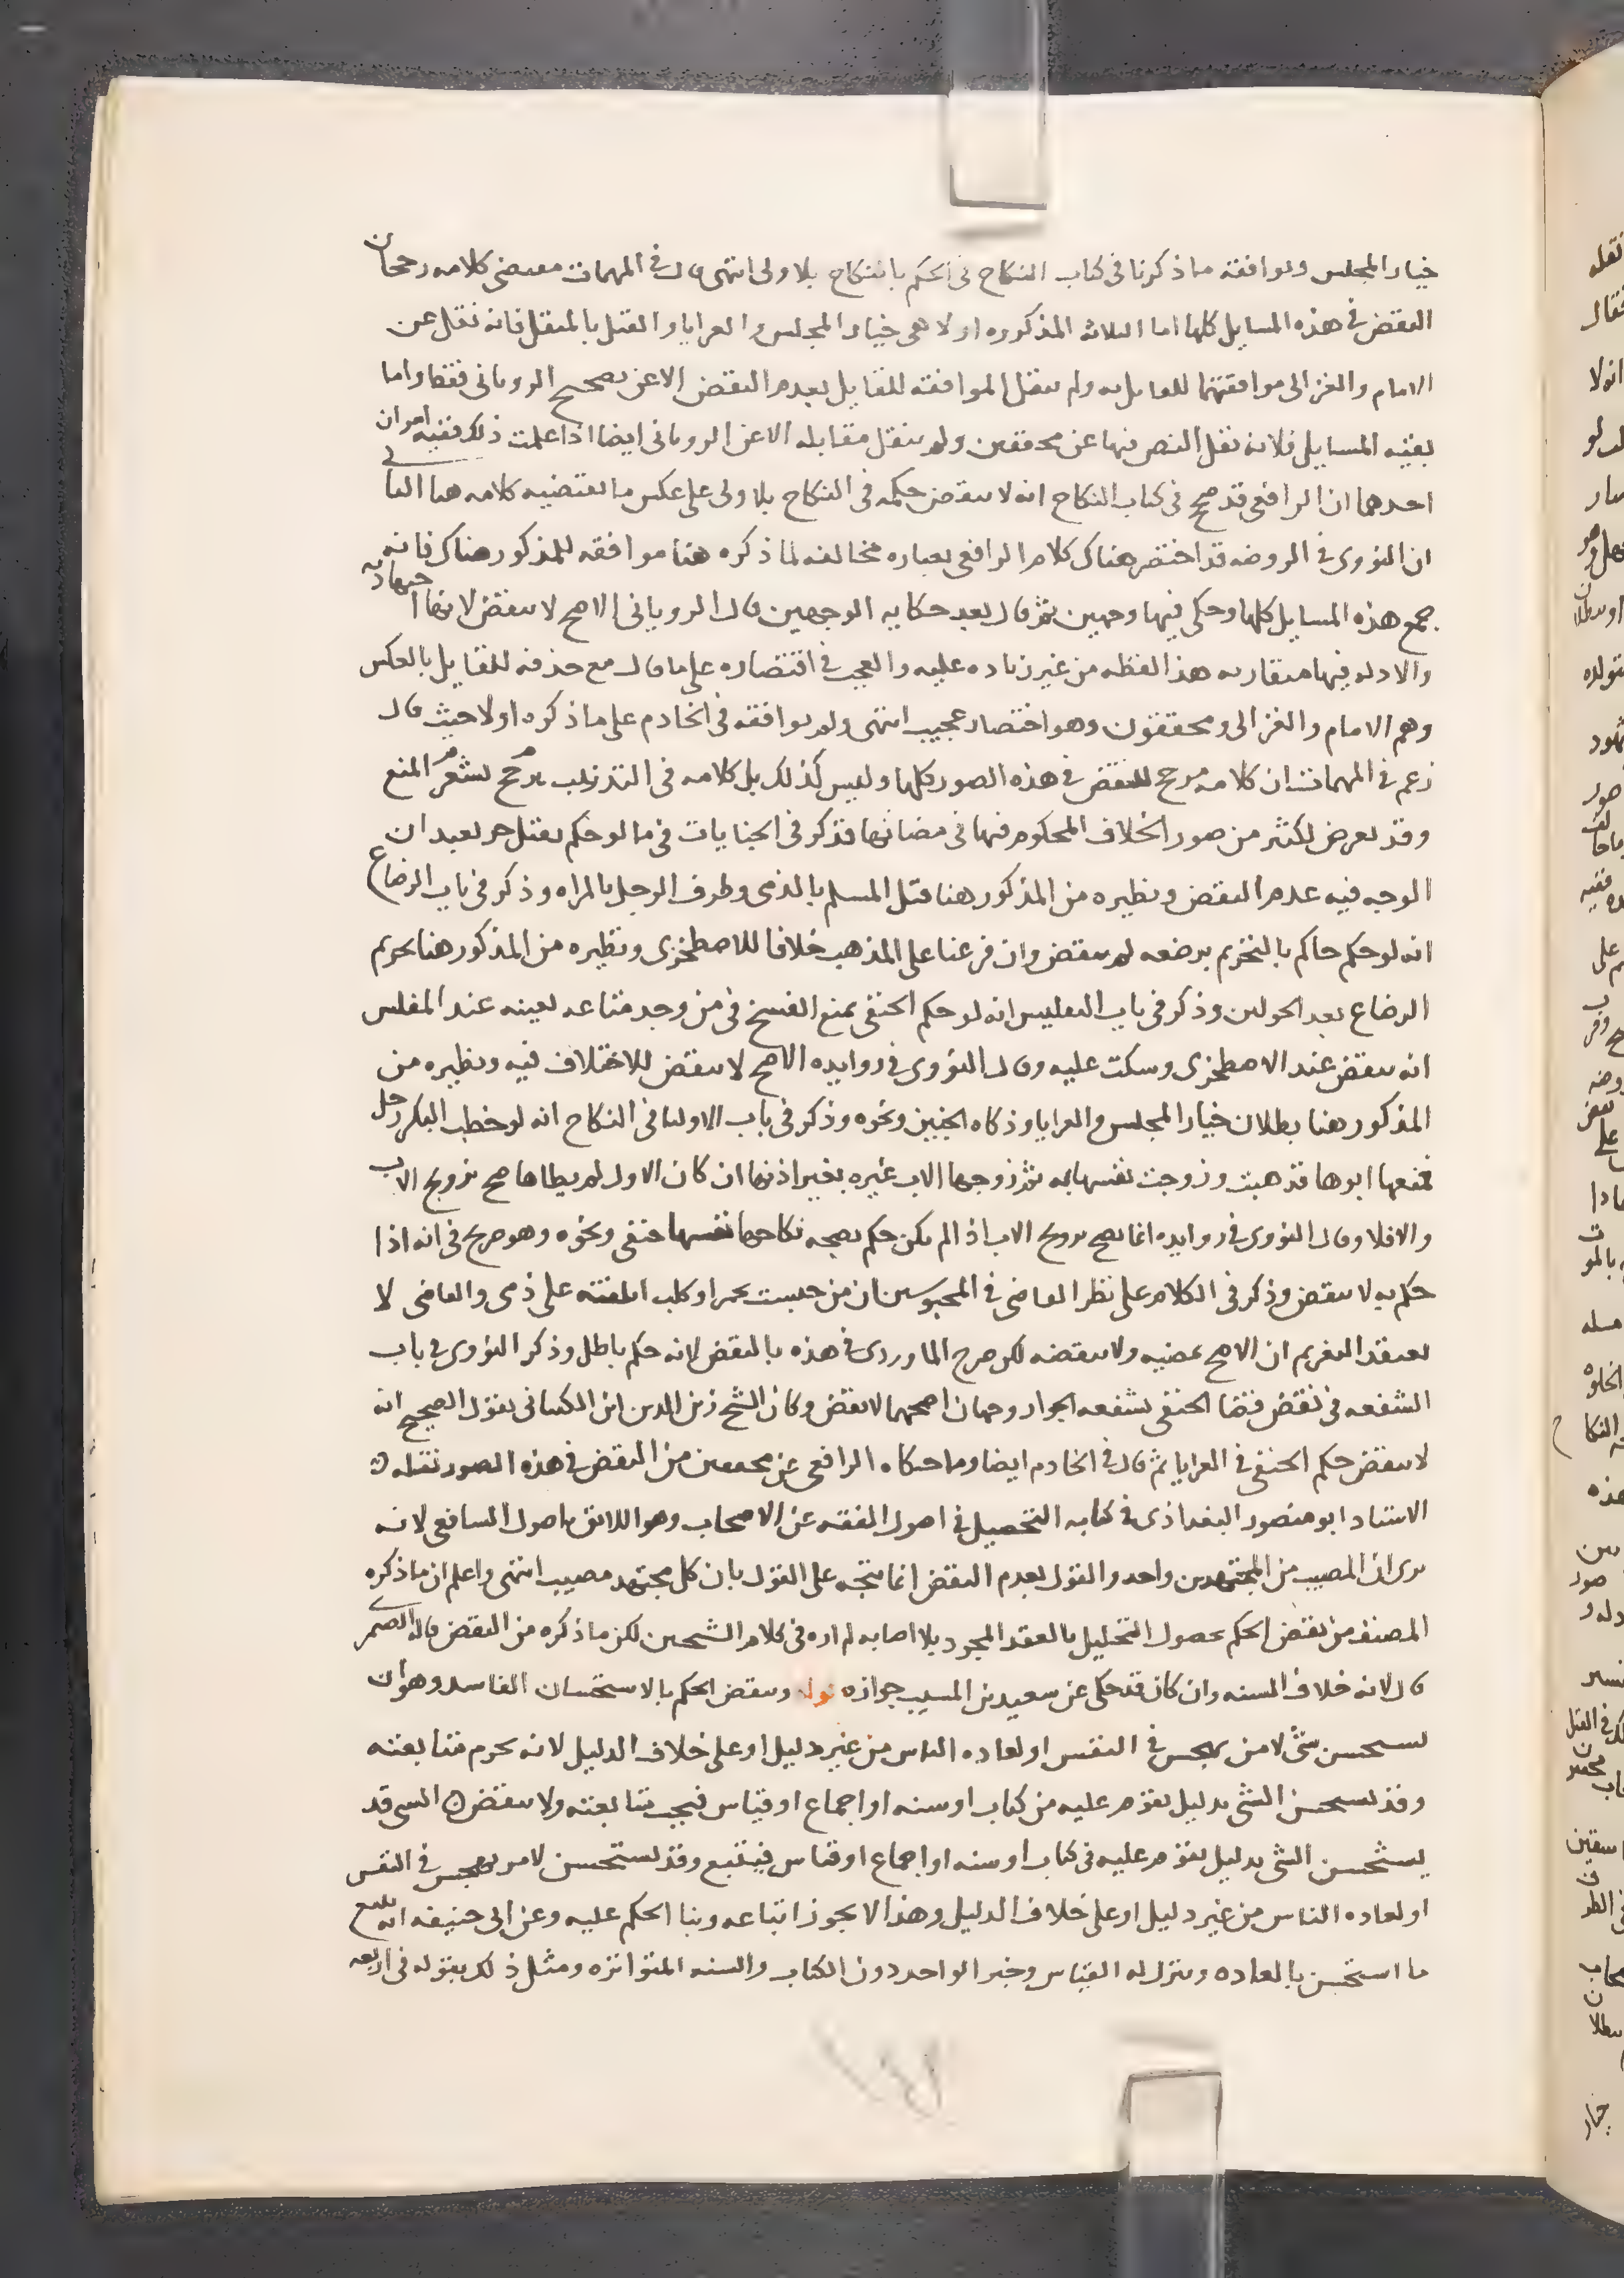 خيار المجلس وبوافقه ما ذكرنا في كتاب النكاح في الحكم بالنكاح بلا ولى انتهى قال في المهمات مقتضى كلامه رجحان
النقض في هذه المسايل كلها اما الثلاث المذكوره اولا هي خيار المجلس والعرايا والقتل بالمثقل فانه نقل عن
الامام والغزالى موافقتهما للقايل به ولم ينقل الموافقه للقايل بعدم النقض الا عن تصحيح الروياني فقط واما
بقيه المسايل فلانه نقل النص فيها عن محققين ولم ينقل مقابله الا عن الروياني ايضا اذا علمت ذلك ففيه امران
احدهما ان الرافعي قد صحح في كتاب النكاح انه لا ينقض حكمه في النكاح بلا ولى على عكس ما يقتضيه كلامه هنا الثاني
ان النووي في الروضه قد اختصر هناك كلام الرافعي بعباره مخالفه لما ذكره هنا موافقه للمذكور هناك فانه
جمع هذه المسايل كلها وحكى فيها وجهين ثم قال بعد حكايه الوجهين قال الروياني الاصح لا ينقض لانها اجتهاديه
والادله فيها متقاربه هذا لفظه من غير زياده عليه والعجب في اقتصاره على ما قال مع حذفه للقايل بالعكس
وهم الامام والغزالى ومحققون وهو اختصار عجيب انتهى ولم يوافقه في الخادم على ما ذكره اولا حيث قال
زعم في المهمات ان كلامه مرجح للنقض في هذه الصور كلها وليس كذلك بل كلامه في التذنيب مرجح لشعر المنع
وقد تعرض لكثير من صور الخلاف المحكوم فيها في مضانها فذكر في الجنايات في ما لو حكم بقتل حر بعبد ان
الوجه فيه عدم النقض ونظيره من المذكور هنا قتل المسلم بالذمى وطرف الرجل بالمراه وذكر في باب الرضاع
انه لو حكم حاكم بالتحريم برضعه لم ينقض وان فرعنا على المذهب خلافا للاصطخرى ونظيره من المذكور هنا تحريم
الرضاع بعد الحولين وذكر في باب التفليس انه لو حكم الحنفى بمنع الفسخ في من وجد متاعه بعينه عند المفلس
انه ينقض عند الاصطخرى وسكت عليه وقال النووي في زوايده الاصح لا ينقض للاختلاف فيه ونظيره من
المذكور هنا بطلان خيار المجلس والعرايا وذكاه الجنين ونحوه وذكر في باب الاوليا في النكاح انه لو خطب البكر رجل
فمنعها ابوها فذهبت وزوجت نفسها به ثم زوجها الاب غيره بغير اذنها ان كان الاول لم يطاها صح تزويج الاب
والا فلا وقال النووي في زوايده انما يصح تزويج الاب اذا لم يكن حكم بصحه نكاحها نفسها حنفى ونحوه وهو صريح في انه اذا
حكم به لا ينقض وذكر في الكلام على نظر القاضى في المحبوسين ان من حبست بخمر او كلب اتلفته على ذمى والقاضى لا
يعتقد التغريم ان الاصح يمضيه ولا ينقضه لكن صرح الماوردى في هذه بالنقض لانه حكم باطل وذكر النووي في باب
الشفعه في نقض قضا الحنفى بشفعه الجوار وجهان اصحهما لا نقض وكان الشيخ زين الدين ابن الكتنانى يقول الصحيح انه
لا ينقض حكم الحنفى في العرايا ثم قال في الخادم ايضا وما حكاه الرافعي عن محققين من النقض في هذه الصور نقله
الاستاد ابو منصور البغداذى في كتابه التحصيل في اصول الفقه عن الاصحاب وهو اللائق باصول الشافعي لانه
يرى ان المصيب من المجتهدين واحد والقول بعدم النقض انما يتجه على القول بان كل مجتهد مصيب انتهى واعلم ان ما ذكره
المصنف من نقض الحكم بحصول التحليل بالعقد المجرد بلا اصابه لم اره في كلام الشيخين لكن ما ذكره من النقض قاله الصيمرى
قال لانه خلاف السنه وان كان قد حكى عن سعيد بن المسيب جوازه قوله وينقض الحكم بالاستحسان الفاسد وهو ان
يستحسن شئ لامر يهجس في النفس او لعاده الناس من غير دليل او على خلاف الدليل لانه يحرم متابعته
وقد يستحسن الشئ بدليل يقوم عليه من كتاب او سنه او اجماع او قياس فيجب متابعته ولا ينقض الشى قد
يستحسن الشئ بدليل يقوم عليه في كتاب او سنه او اجماع او قياس فيتبع وقد يستحسن لامر يهجس في النفس
او لعاده الناس من غير دليل او على خلاف الدليل وهذا لا يجوز اتباعه وبنا الحكم عليه وعن ابى حنيفه انه يتبع
ما استحسن بالعاده ويترك له القياس وخبر الواحد دون الكتاب والسنه المتواتره ومثل ذلك بقوله في اربعه